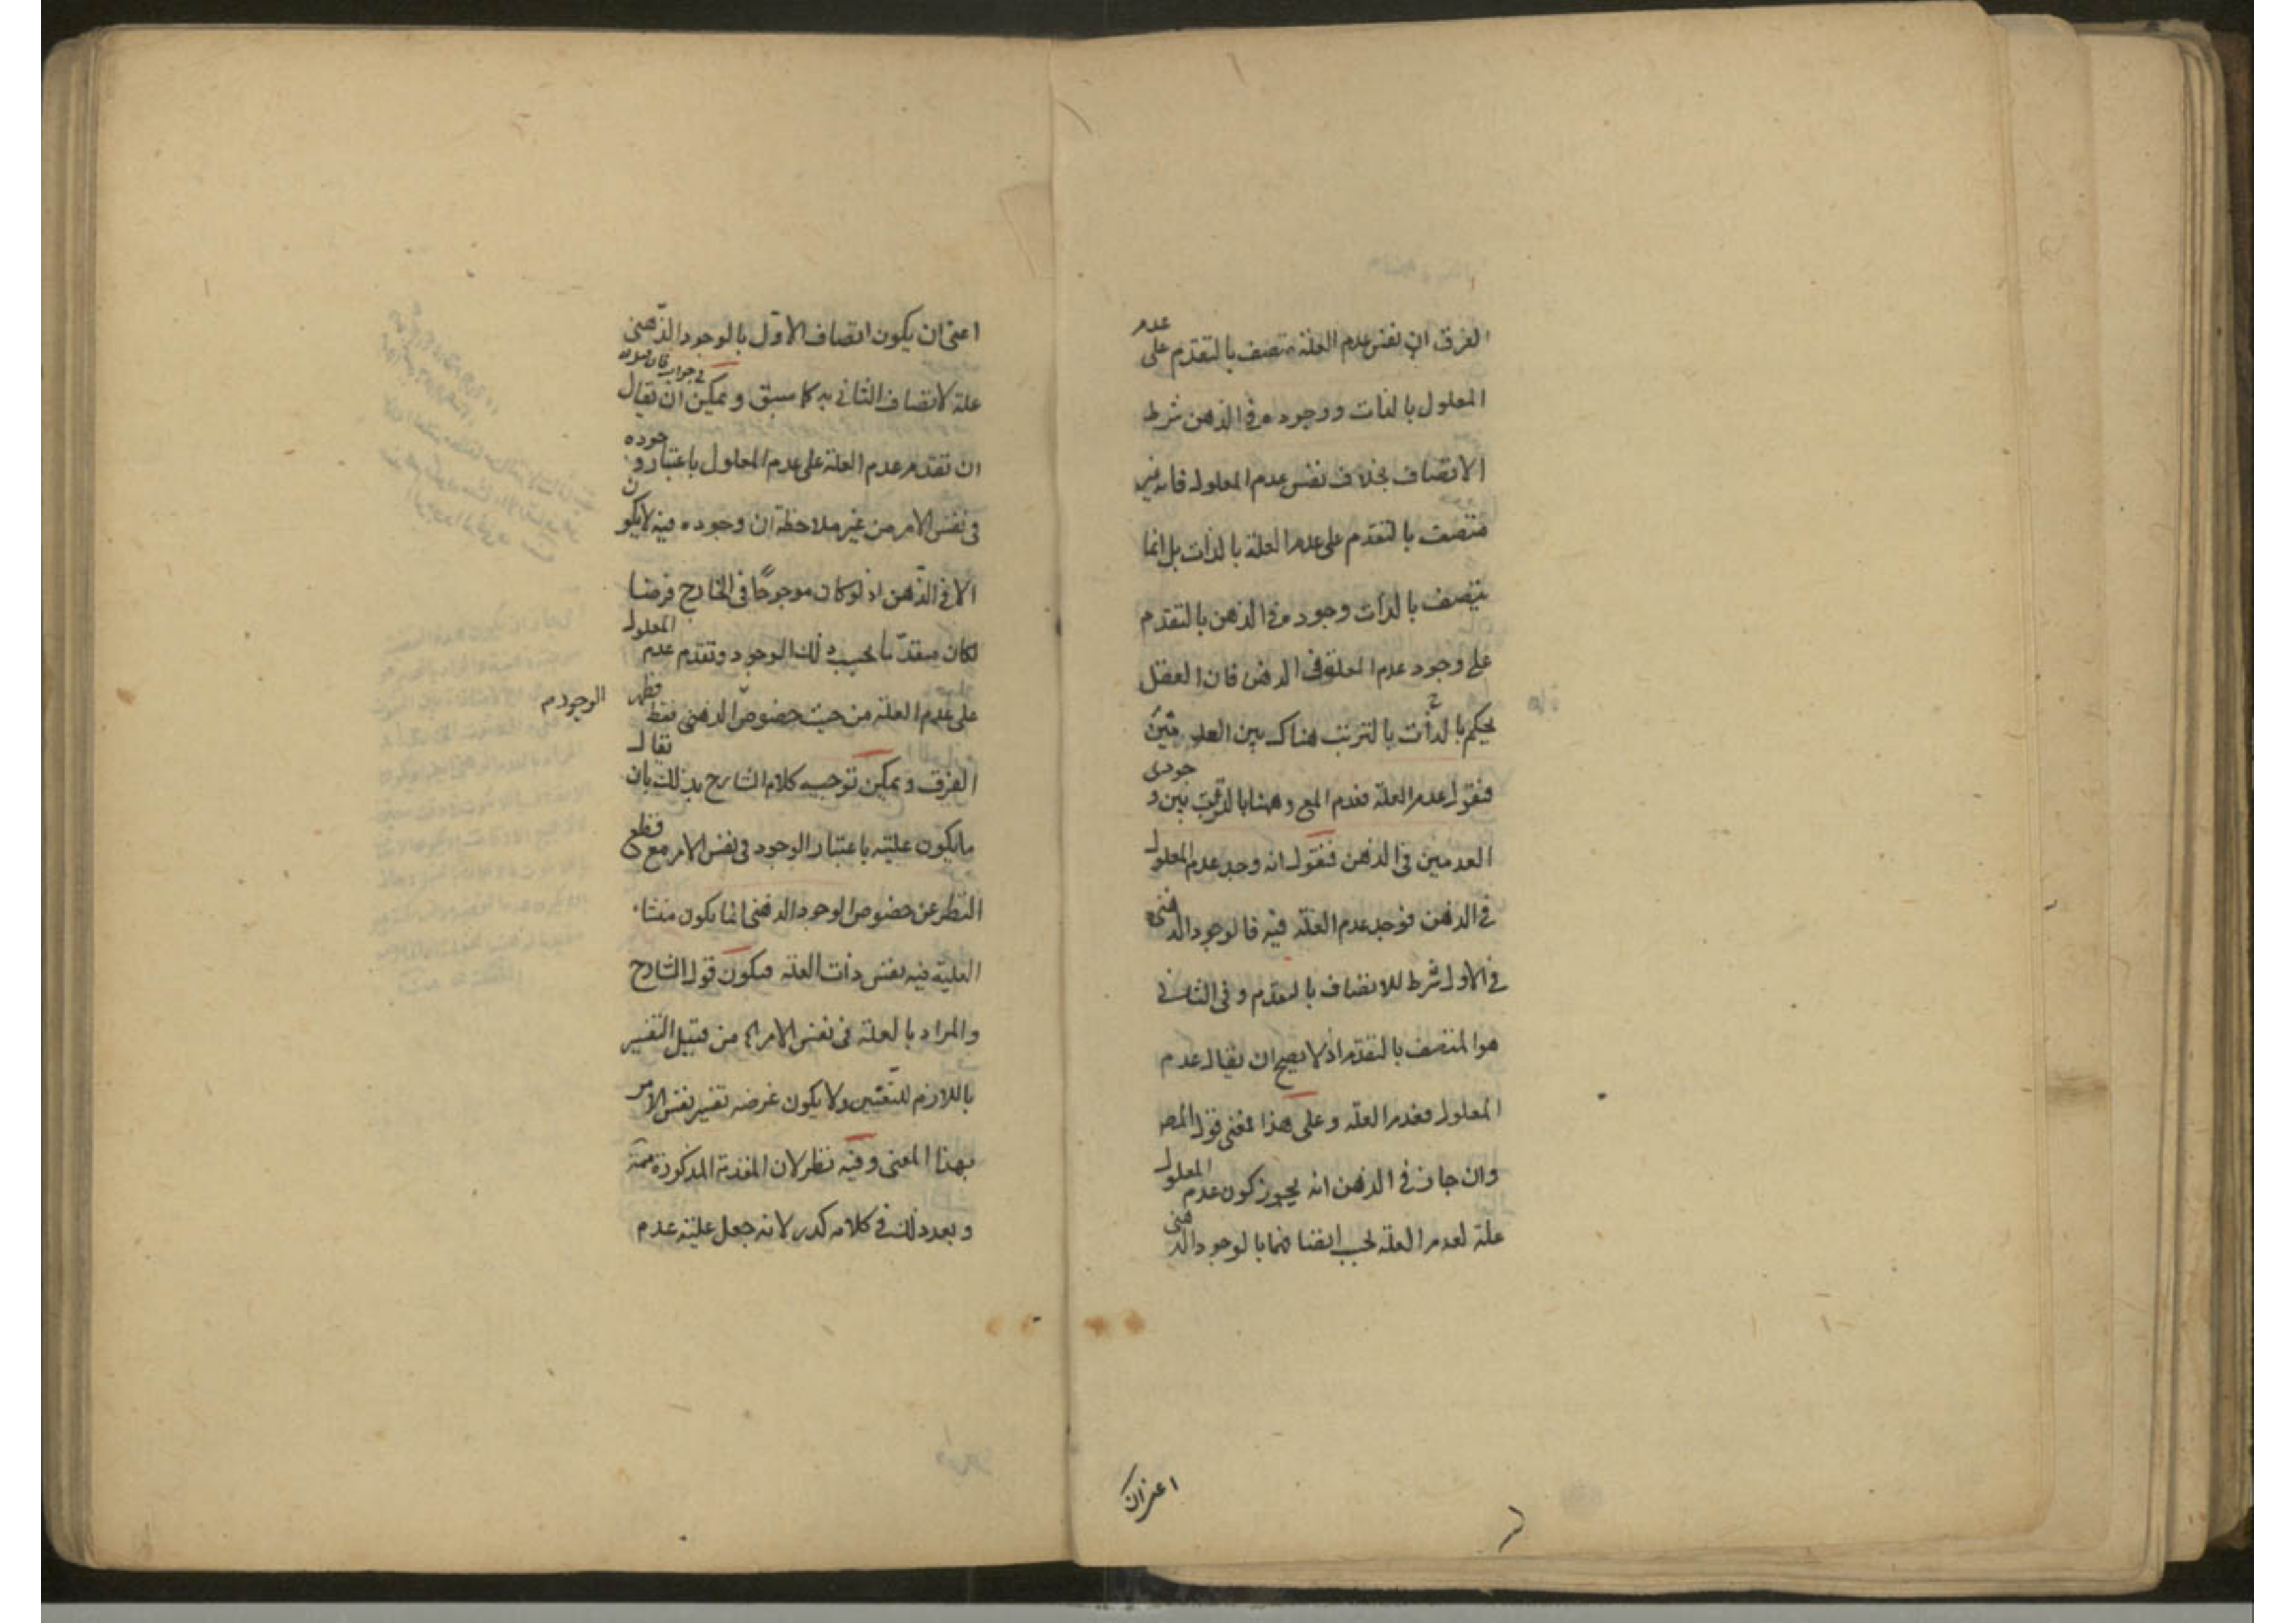 الفرق ان نفس عدم العلة متصف بالتقدم على عدم
المعلول بالذات ووجوده في الذهن شرط
الاتصاف بخلاف نفس عدم المعلول فانه غير
متصف بالتقدم على عدم العلة بالذات بل انما
يتصف بالذات وجوده في الذهن بالتقدم
على وجود عدم العلة في الذهن فان العقل
يحكم بالذات بالترتب هناك بين العدمين
فنقول عدم العلة فعدم المع وههنا بالترتب بين وجودى
العدمين في الذهن فنقول انه وجد عدم المعلول
في الذهن فوجد عدم العلة فيه فالوجود الذهنى
في الاول شرط للاتصاف بالتقدم وفي الثانى
هو المتصف بالتقدم اذ لا يصح ان يقال عدم
المعلول فعدم العلة وعلى هذا معنى قول المص
وان جاز في الذهن انه يجوز كون عدم المعلول
علة لعدم العلة بحسب اتصافهما بالوجود الذهنى
اعنى ان
اعنى ان يكون اتصاف الاول بالوجود الذهنى
علة لاتصاف الثانى به كما سبق ويمكن ان يقال
في جواب
ان تقدم عدم العلة على عدم المعلول باعتبار وجوده
في نفس الامر من غير ملاحظة ان وجوده فيه لا يكون
الا في الذهن اذ لو كان موجودًا في الخارج فرضا
لكان متقدما بحسب ذلك الوجود وتقدم عدم المعلول
على عدم العلة من حيث خصوص الذهنى فقط فظهر
الوجود
الفرق ويمكن توجيه كلام الشارح بذلك بان يقال
ما يكون علية باعتبار الوجود في نفس الامر مع قطع
النظر عن خصوص الوجود الذهنى انما يكون منشاء
العلية فيه نفس ذات العلة فيكون قول الشارح
والمراد بالعلة في نفس الامر من قبيل التفسير
باللازم للتعيين ولا يكون غرضه تفسير نفس الامر
بهذا المعنى وفيه نظر لان المقدمة المذكورة
وبعد ذلك في كلامه كدر لانه جعل علية عدم